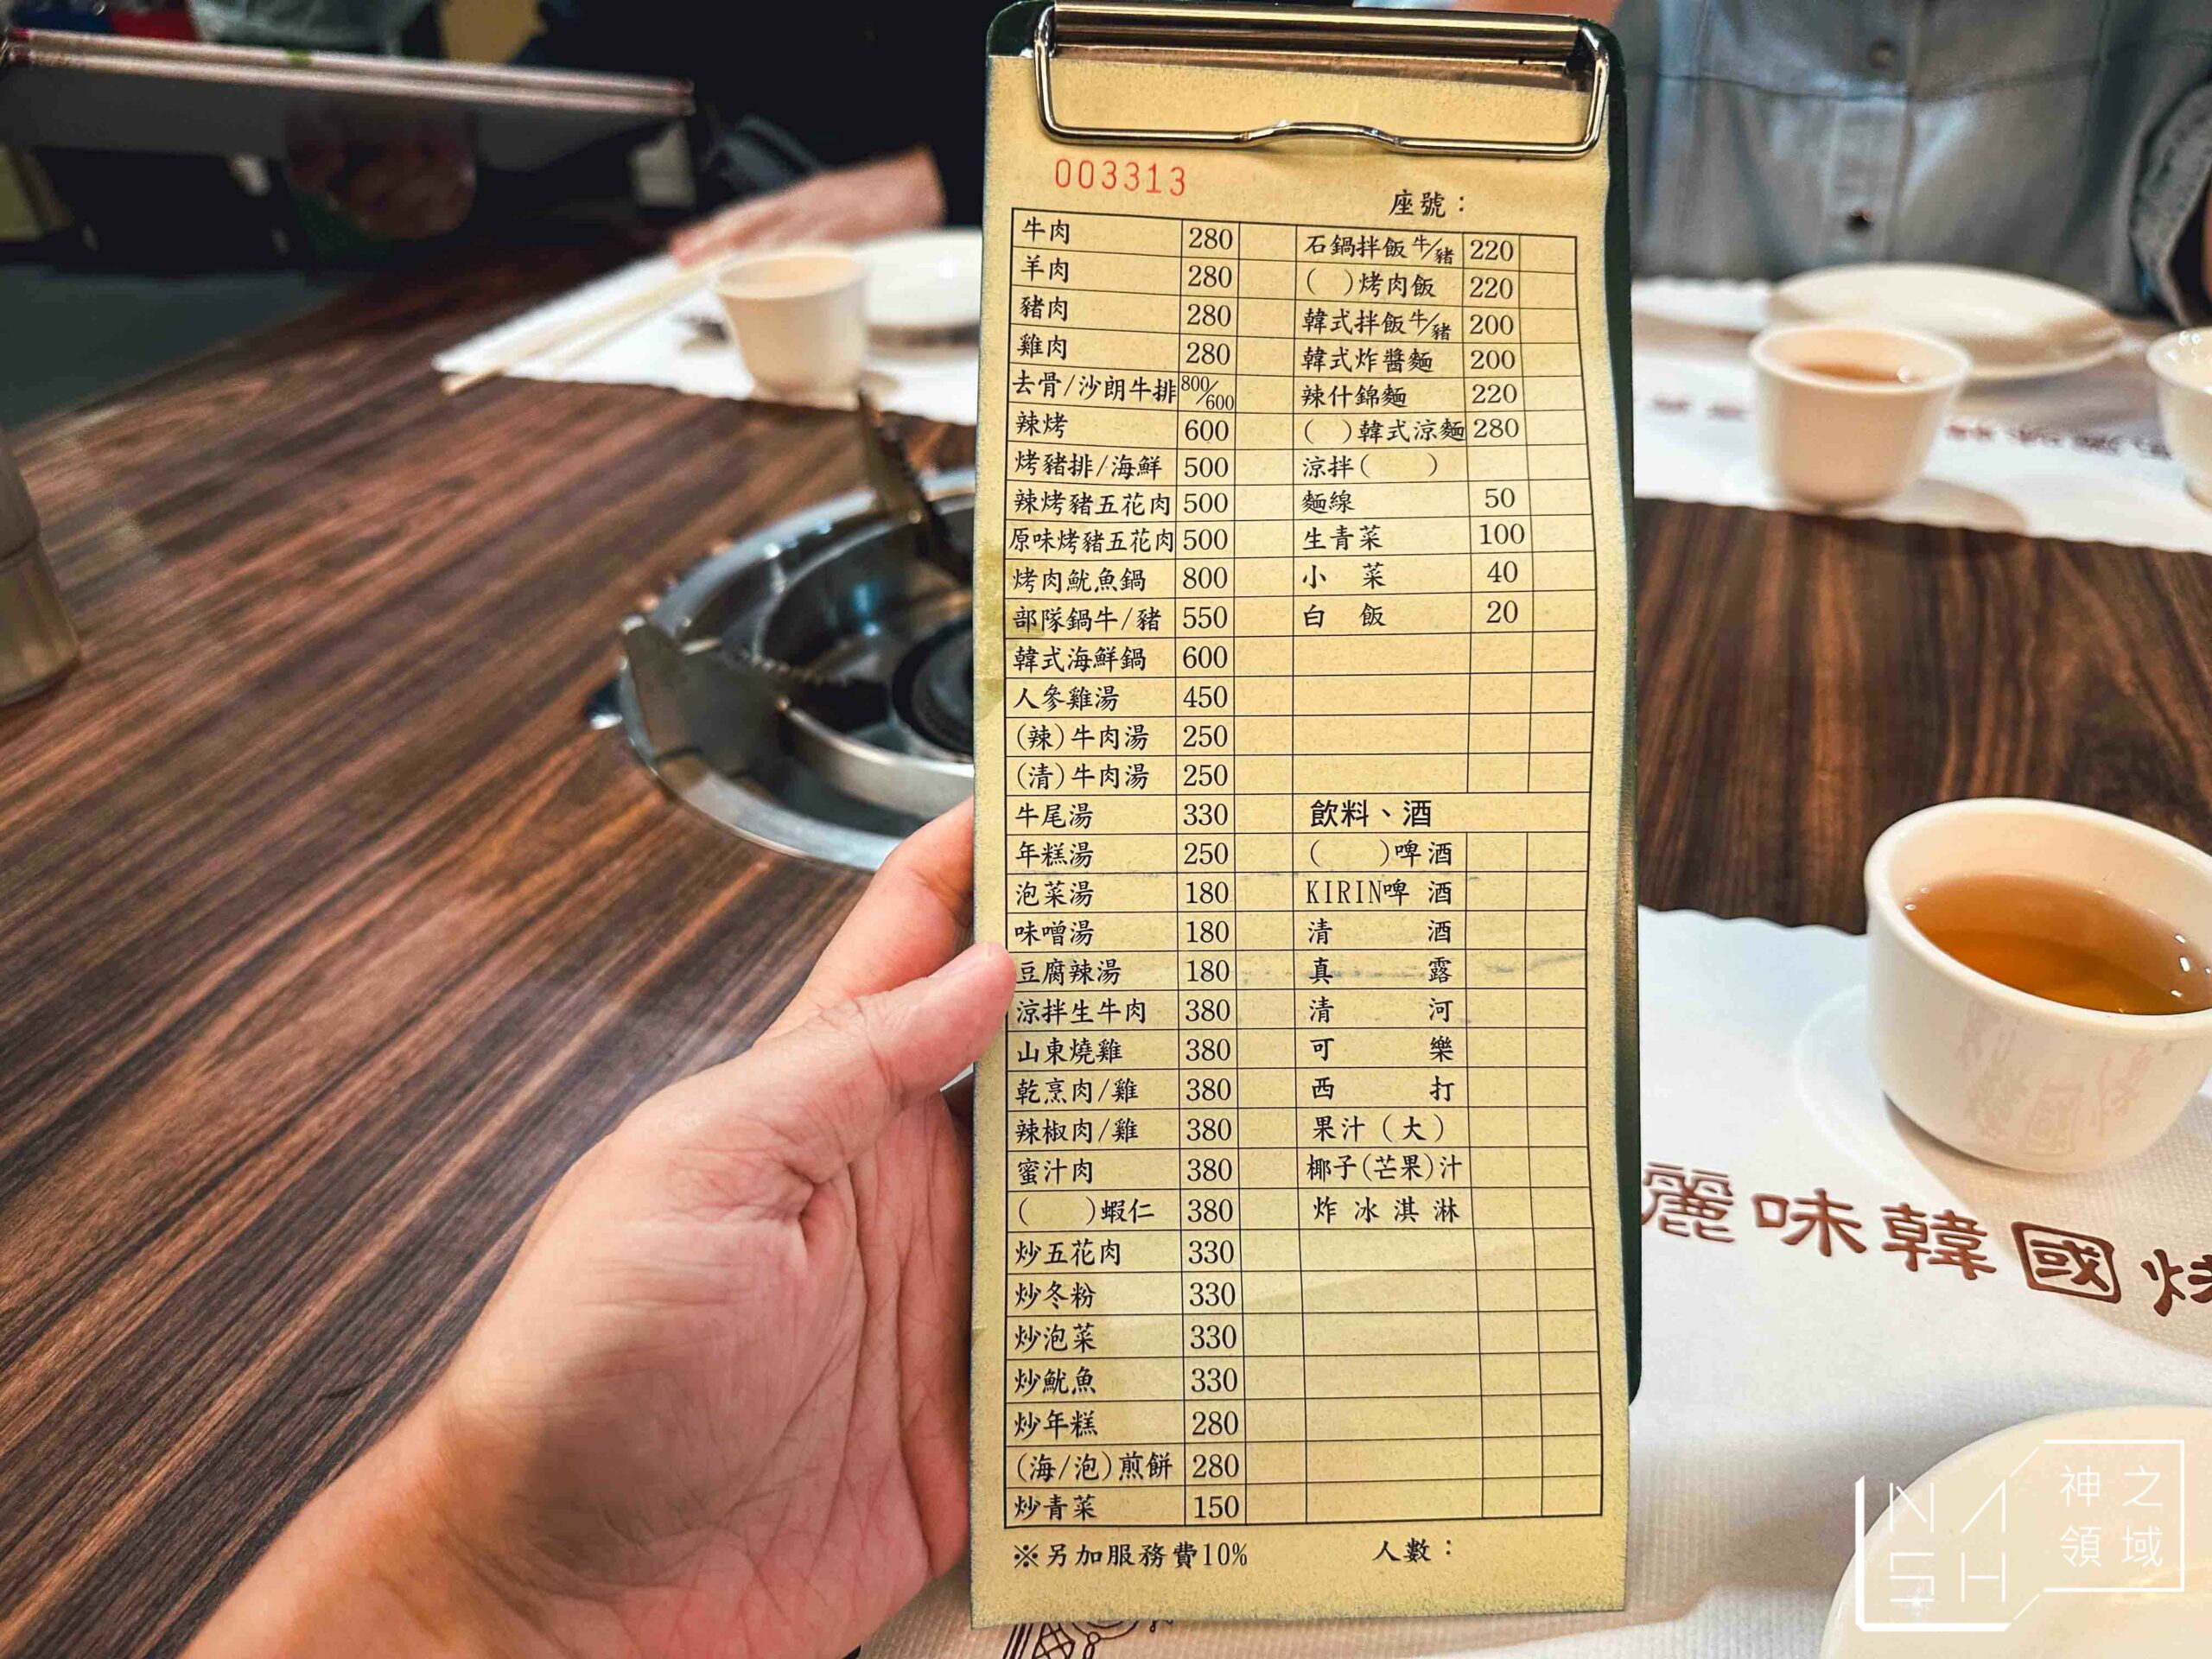 003313
座號：
牛肉 280
羊肉 280
豬肉 280
雞肉 280
去骨/沙朗牛排 800/600
辣烤 600
烤豬排/海鮮 500
辣烤豬五花肉 500
原味烤豬五花肉 500
烤肉魷魚鍋 800
部隊鍋牛/豬 550
韓式海鮮鍋 600
人參雞湯 450
(辣)牛肉湯 250
(清)牛肉湯 250
牛尾湯 330
年糕湯 250
泡菜湯 180
味噌湯 180
豆腐辣湯 180
涼拌生牛肉 380
山東燒雞 380
乾烹肉/雞 380
辣椒肉/雞 380
蜜汁肉 380
( )蝦仁 380
炒五花肉 330
炒冬粉 330
炒泡菜 330
炒魷魚 330
炒年糕 280
(海/泡)煎餅 280
炒青菜 150
石鍋拌飯牛/豬 220
( )烤肉飯 220
韓式拌飯牛/豬 200
韓式炸醬麵 200
辣什錦麵 220
( )韓式涼麵 280
涼拌( )
麵線 50
生青菜 100
小菜 40
白飯 20
飲料、酒
( )啤酒
KIRIN啤酒
清酒
真露
清河
可樂
西打
果汁（大）
椰子(芒果)汁
炸冰淇淋
※另加服務費10%
人數：
麗味韓國烤
NASH
神之
領域